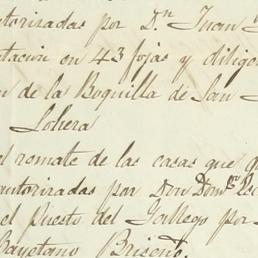 autorizadas por D.n Juan
tacion en 43 fojas y diligen
n de la Boquilla de San
Lobera
el remate de las casas que
autorizadas por Don Dom.o
el Puesto del Gallego por
Cayetano Briseño.